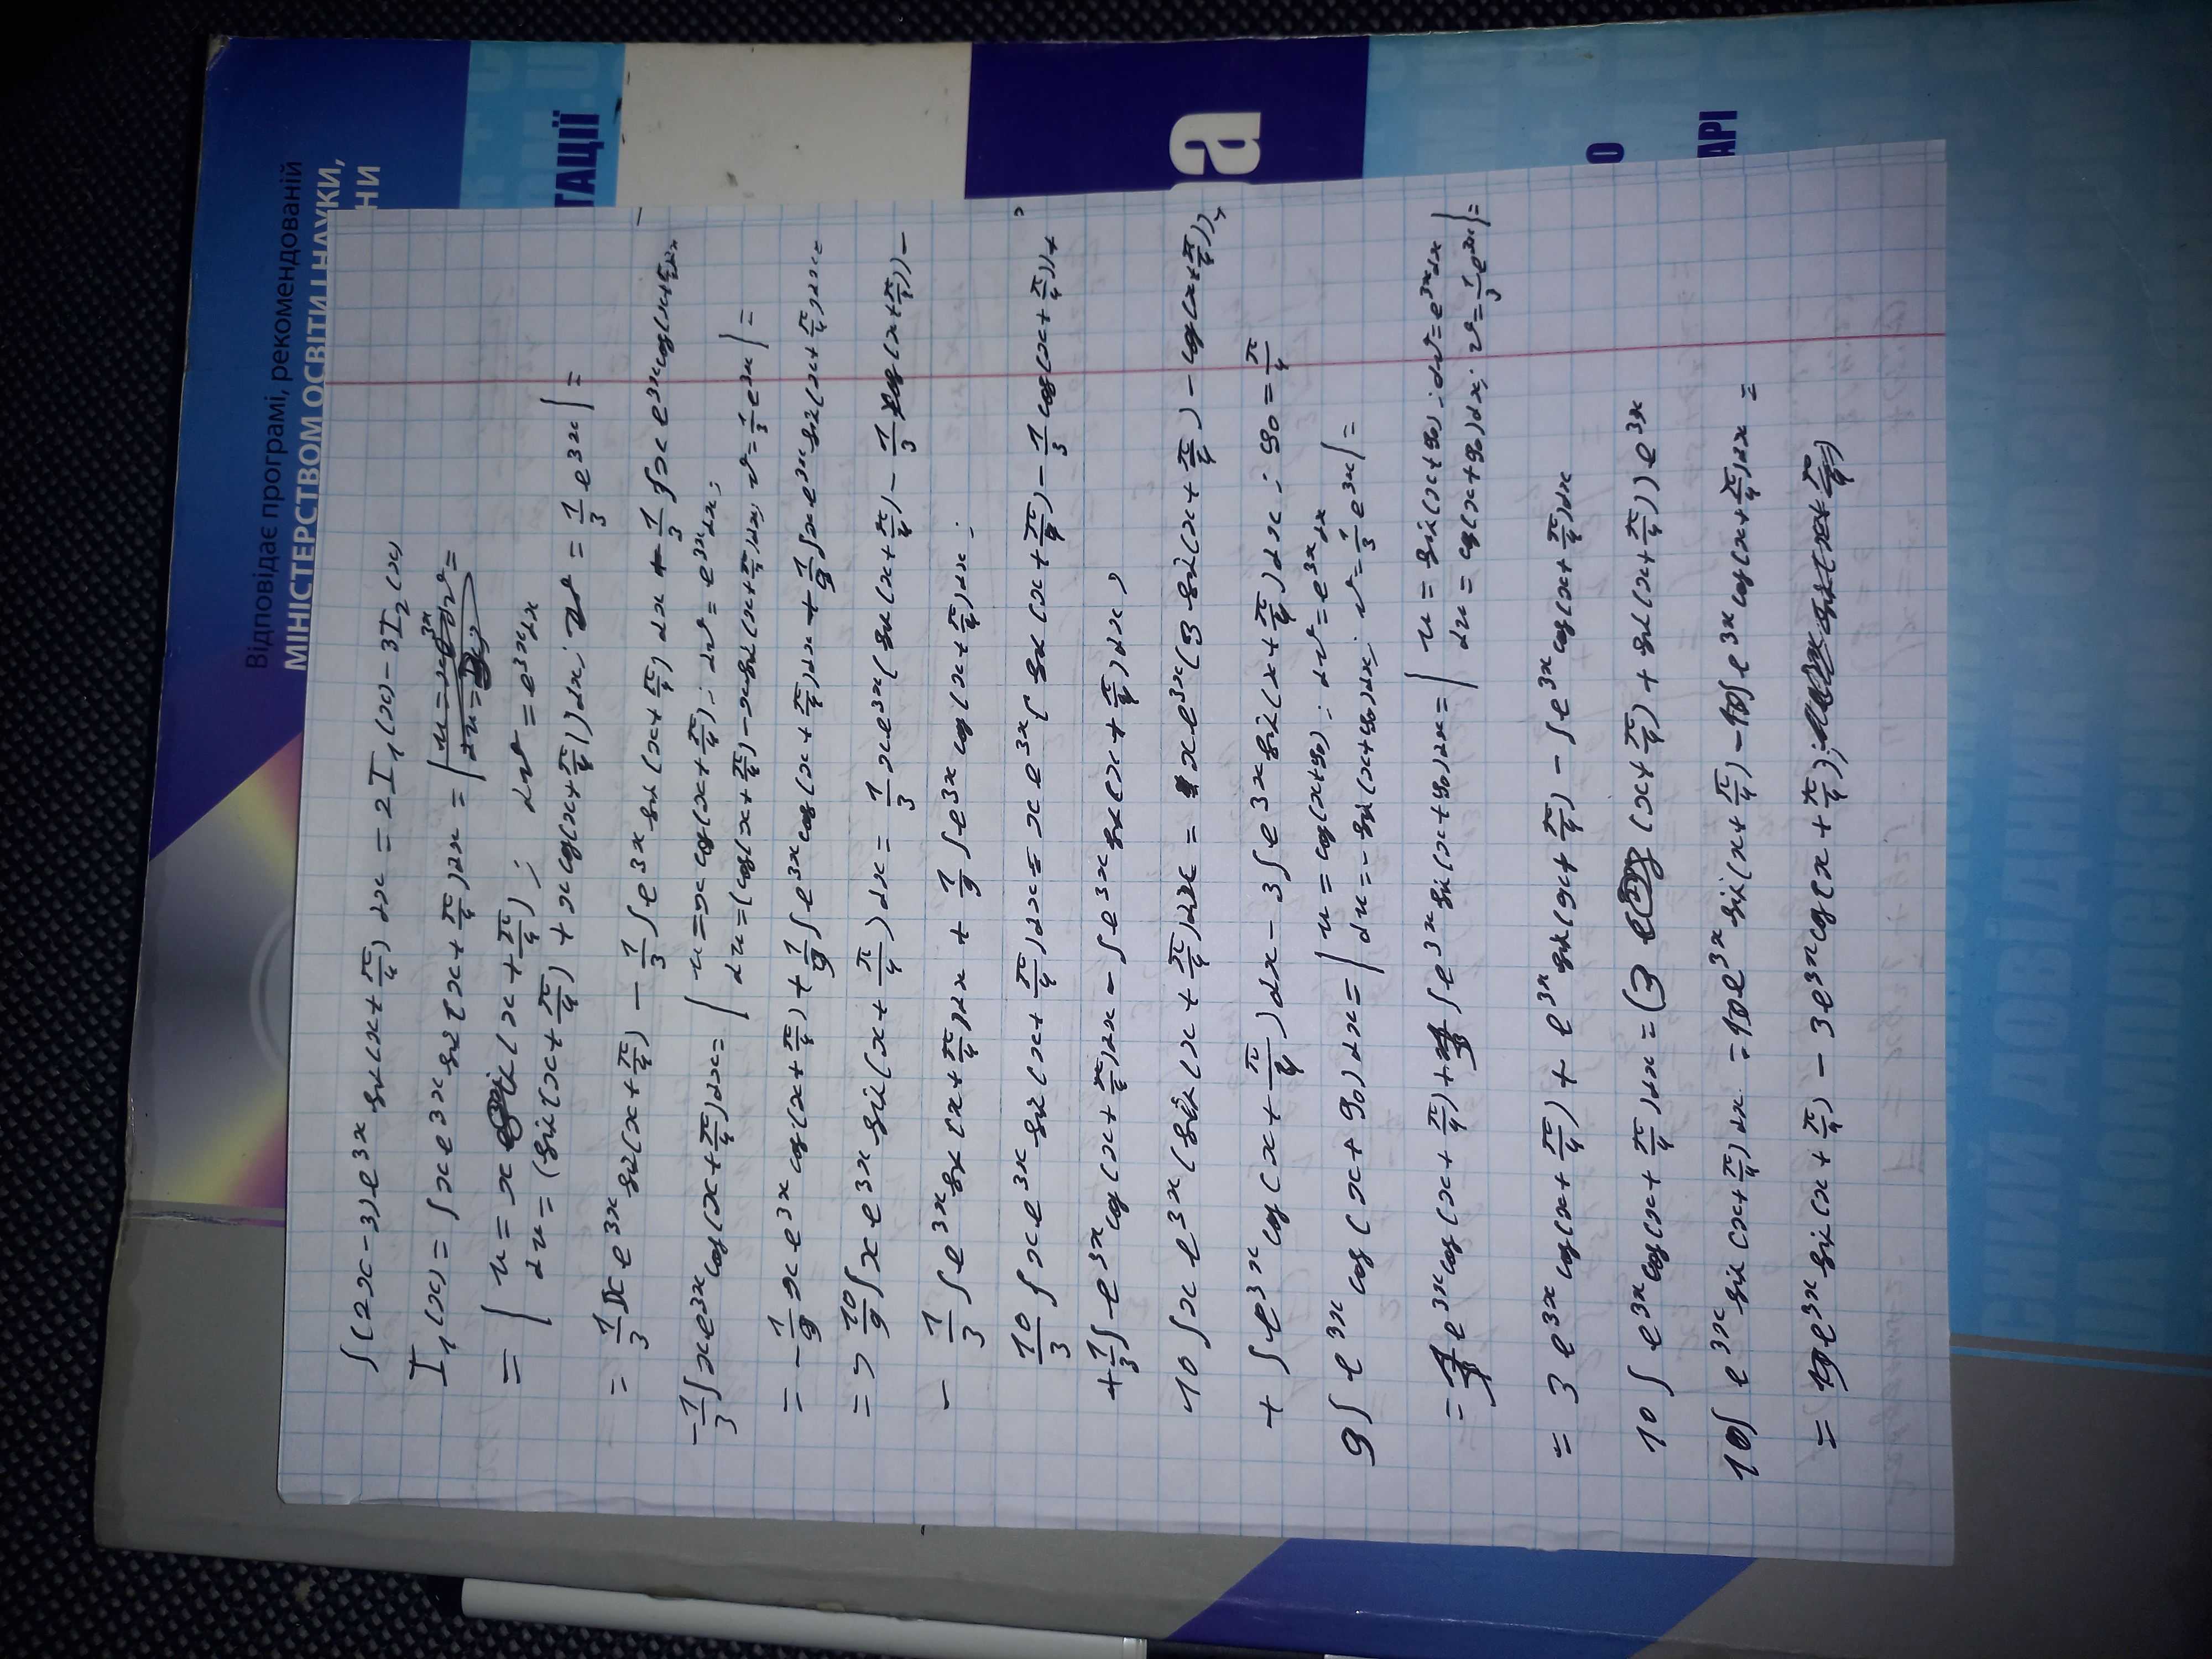 Відповідає програмі, рекомендованій
МІНІСТЕРСТВОМ ОСВІТИ І НАУКИ,
НИ
ТАЦІЇ
ра
О
АРІ
∫(2x-3)e^{3x} sin(x+π/4) dx = 2I₁(x) - 3I₂(x)
I₁(x) = ∫xe^{3x} sin(x+π/4)dx =
= | u = x sin(x+π/4); dv = e^{3x}dx
du = (sin(x+π/4) + x cos(x+π/4))dx; v = 1/3 e^{3x} | =
= 1/3 x e^{3x} sin(x+π/4) - 1/3 ∫e^{3x} sin(x+π/4) dx - 1/3 ∫x e^{3x} cos(x+π/4)dx
-1/3 ∫xe^{3x} cos(x+π/4)dx = | u = x cos(x+π/4); dv = e^{3x}dx;
du = (cos(x+π/4) - x sin(x+π/4))dx; v = 1/3 e^{3x} | =
= -1/9 x e^{3x} cos(x+π/4) + 1/9 ∫e^{3x} cos(x+π/4)dx + 1/9 ∫x e^{3x} sin(x+π/4)dx =
=> 10/9 ∫x e^{3x} sin(x+π/4)dx = 1/3 xe^{3x}(sin(x+π/4) - 1/3 cos(x+π/4)) -
- 1/3 ∫e^{3x} sin(x+π/4)dx + 1/9 ∫e^{3x} cos(x+π/4)dx;
10/3 ∫xe^{3x} sin(x+π/4)dx = xe^{3x}(sin(x+π/4) - 1/3 cos(x+π/4)) +
+1/3 ∫e^{3x} cos(x+π/4)dx - ∫e^{3x} sin(x+π/4)dx,
10 ∫x e^{3x}(sin(x+π/4)dx = x e^{3x}(3 sin(x+π/4) - cos(x+π/4)) +
+ ∫e^{3x} cos(x+π/4)dx - 3∫e^{3x} sin(x+π/4)dx; φ₀ = π/4
9∫e^{3x} cos(x+φ₀)dx = | u = cos(x+φ₀); dv = e^{3x}dx
du = - sin(x+φ₀)dx; v = 1/3 e^{3x} | =
= e^{3x} cos(x+π/4) + ∫e^{3x} sin(x+φ₀)dx = | u = sin(x+φ₀); dv = e^{3x}dx
du = cos(x+φ₀)dx; v = 1/3 e^{3x} | =
= 3 e^{3x} cos(x+π/4) + e^{3x} sin(x+π/4) - ∫e^{3x} cos(x+π/4)dx
10∫e^{3x} cos(x+π/4)dx = (3 (x+π/4) + sin(x+π/4))e^{3x}
10∫e^{3x} sin(x+π/4)dx = 10e^{3x} sin(x+π/4) - 10∫e^{3x} cos(x+π/4)dx =
= e^{3x} sin(x+π/4) - 3e^{3x} cos(x+π/4);